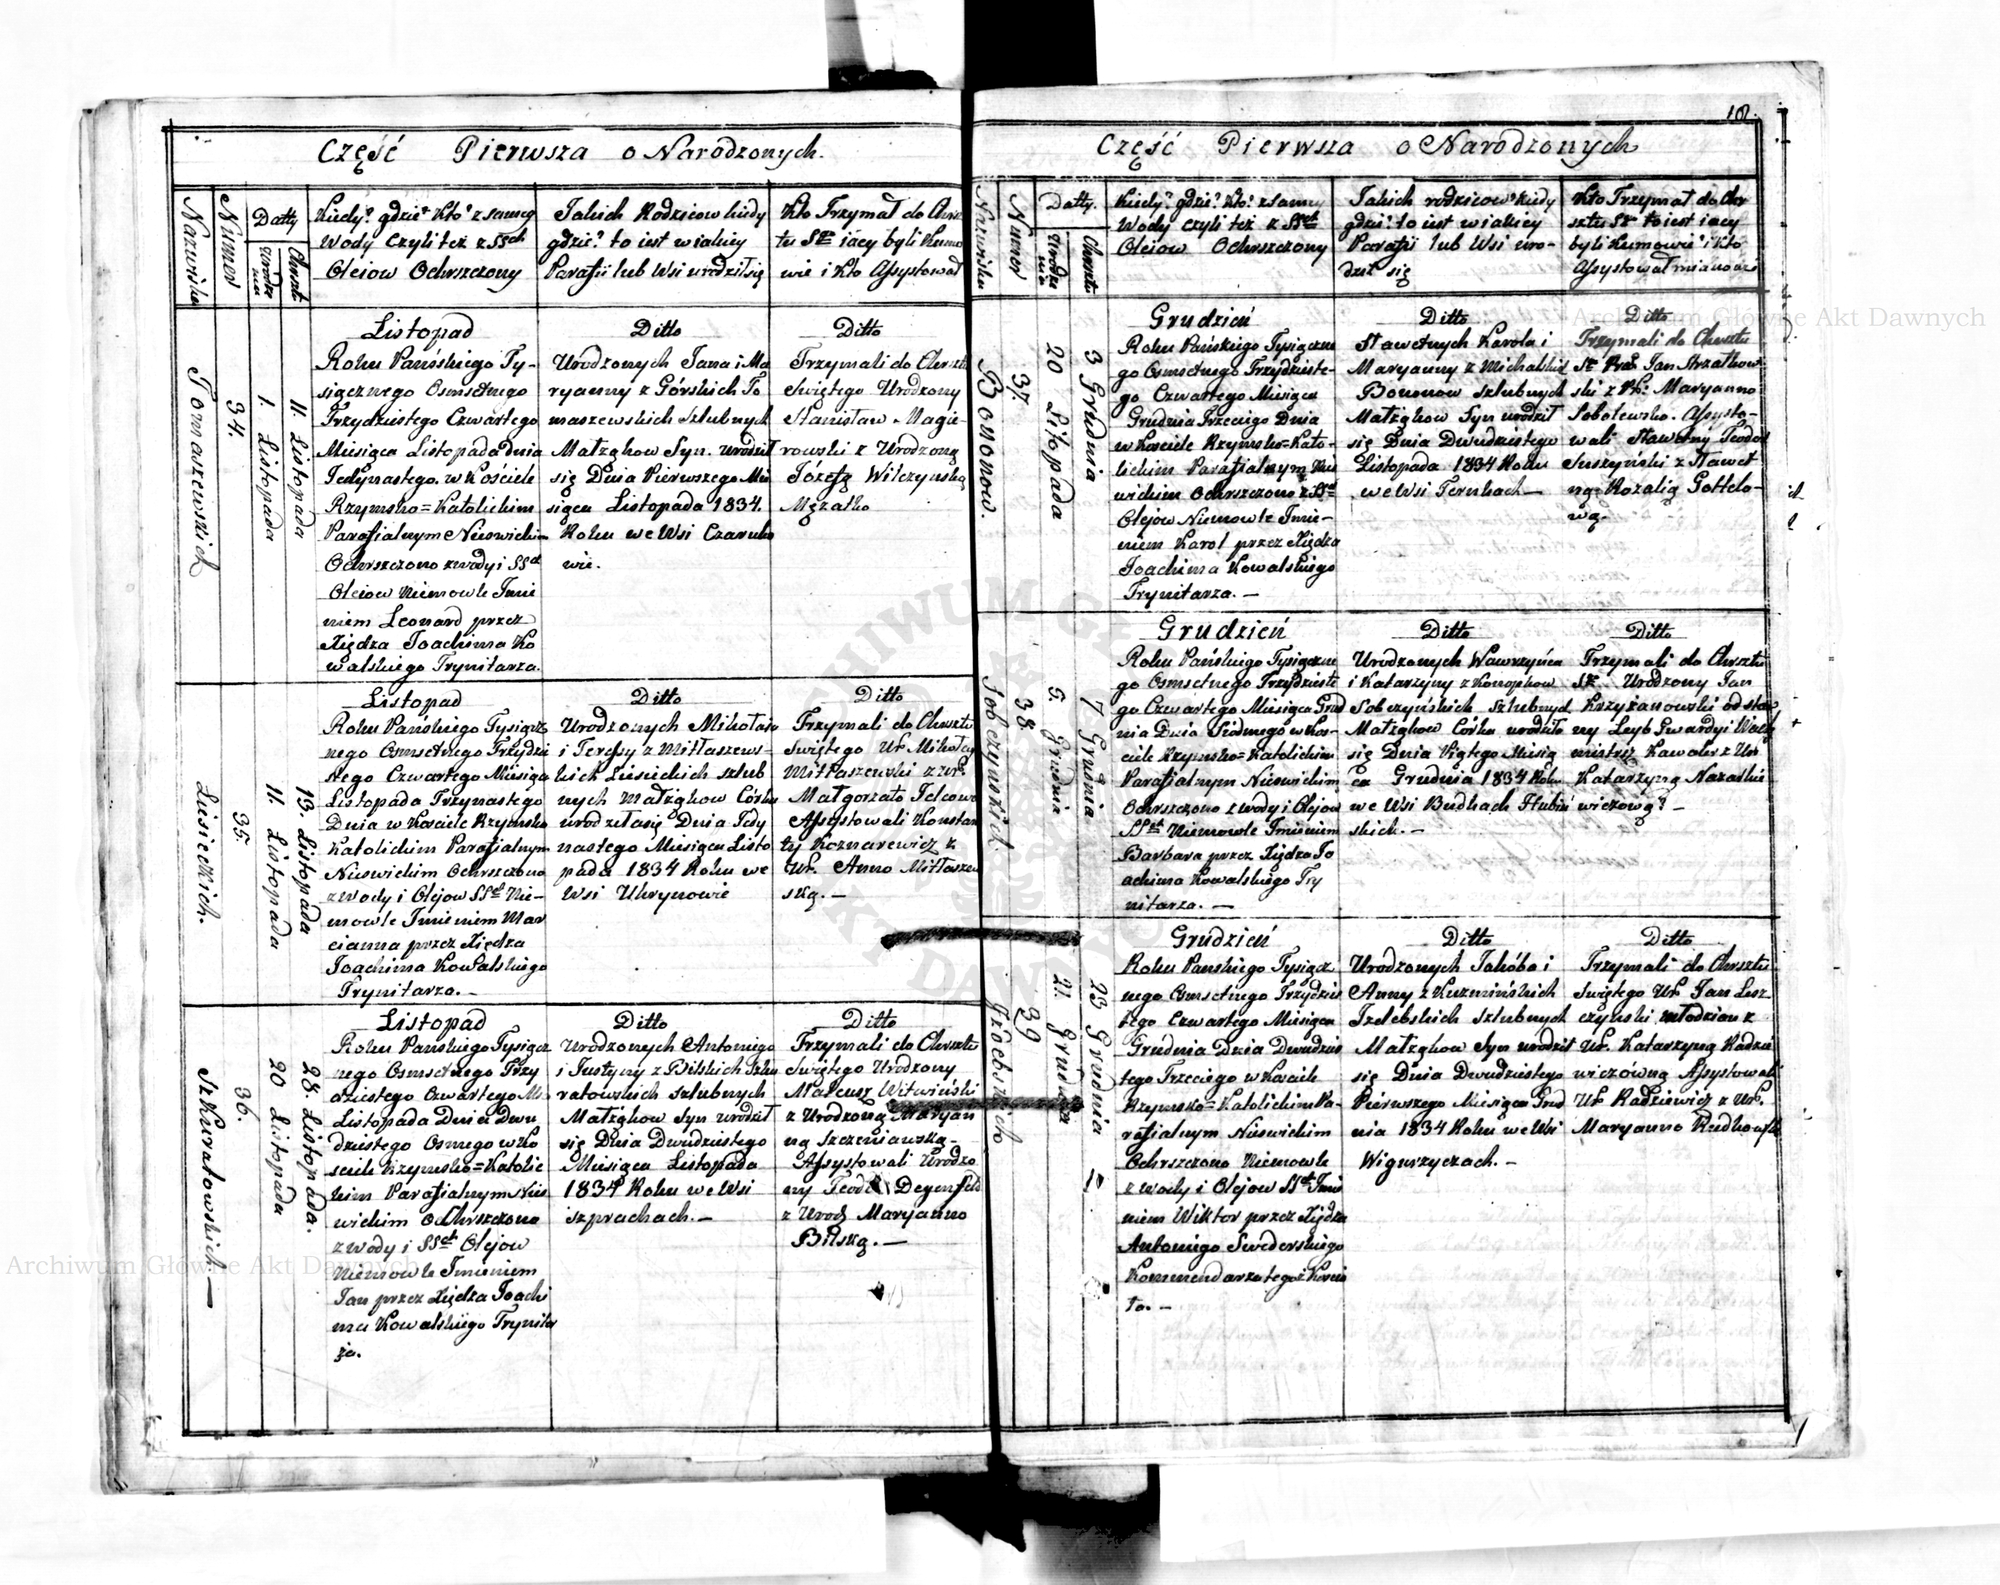 Część Pierwsza o Narodzonych.
Nazwisko
Numer
Datty
Urodzenia
Chrztu
Kiedy? gdzie? Kto? z samey
Wody czyli też z SSch
Oleiow Ochrszczony
Jakich Rodzicow kiedy
gdzie? to iest w iakiey
Parafii lub Wsi urodził się
Kto Trzymał do Chrz
tu St iacy byli Kumo
wie i Kto Assystował
Tomaszewskich
34.
1. Listopada
11. Listopada
Listopad
Roku Pańskiego Ty-
siącznego Osmsetnego
Trzydziestego Czwartego
Miesiąca Listopada Dnia
Jedynastego w Kościele
Rzymsko=Katolickim
Parafialnym Nieswickim
Ochrszczono z wody i SSch
Oleiow Niemowle Imie
niem Leonard przez
Xiędza Joachima Ko
walskiego Trynitarza.
Ditto
Urodzonych Jana i Ma
ryanny z Górskich To
maszewskich Szlubnych
Małżąkow Syn urodził
się Dnia Pierwszego Mie
siąca Listopada 1834.
Roku we Wsi Czaruko
wie.
Ditto
Trzymali do Chrztu
Swiętego Urodzony
Stanisław Magie-
rowski z Urodzoną
Józefą Wilczynską
Mężatką
Lisieckich.
35.
11. Listopada
13. Listopada
Listopad
Roku Pańskiego Tysiącz
nego Osmsetnego Trzydzie
stego Czwartego Miesiąca
Listopada Trzynastego
Dnia w Kosciele Rzymsko
Katolickim Parafialnym
Nieswickim Ochrszczono
z Wody i Olejow SSch Nie-
mowle Imieniem Mar
cianna przez Xiędza
Joachima Kowalskiego
Trynitarza. —
Ditto
Urodzonych Mikołaja
i Teressy z Mitłaszews-
kich Lisieckich szlub
nych Małżąkow Córka
urodziła się Dnia Jedy
nastego Miesiąca Listo
pada 1834 Roku we
Wsi Ukrynowie
Ditto
Trzymali do Chrsztu
Swiętego Ur. Mikołay
Mitłaszewski z Ur.
Małgorzatą
Assystowali Konstan
ty Koznarewicz z
Ur. Anną Mitłaszew
ską. —
Szkuratowskich —
36.
20 Listopada
28. Listopada.
Listopad
Roku Pańskiego Tysiącz
nego Osmsetnego Trzy
dziestego Czwartego M.
Listopada Dnia Dwu
dziestego Osmego w Ko
sciele Rzymsko=Katolic
kim Parafialnym Nies
wickim Ochrszczono
z Wody i SSch Olejow
Niemowle Imieniem
Jan przez Xiędza Joachi
ma Kowalskiego Trynita
rza.
Ditto
Urodzonych Antoniego
i Justyny z Bilskich Szku
ratowskich szlubnych
Małżąkow Syn urodził
się Dnia Dwudziestego
Miesiąca Listopada
1834 Roku we Wsi
Szprachach. —
Ditto
Trzymali do Chrsztu
Swiętego Urodzony
Mateusz Witwiński
z Urodzoną Maryan
ną Szczeniawską-
Assystowali Urodzo
ny Teodor Degenfeld
z Urodz Maryanną
Bilską. —
18.
Część Pierwsza o Narodzonych
Nazwisko
Numer
Datty.
Urodzenia
Chrztu
Kiedy? gdzie? Kto? z samey
Wody czyli też z SSch
Olejow Ochrszczony
Jakich rodzicow kiedy
gdzie? to iest w iakiey
Parafii lub Wsi uro-
dził się
Kto Trzymał do Chr
sztu St to iest iacy
byli Kumowie i Kto
Assystował mianowi
Bononow.
37.
20 Listopada
3 Grudnia
Grudzień
Roku Pańskiego Tysiączne
go Osmsetnego Trzydzieste-
go Czwartego Miesiąca
Grudnia Trzeciego Dnia
w Kosciele Rzymsko=Kato-
lickim Parafialnym Nies
wickim Ochrszczono z SSch
Olejow Niemowle Imie-
niem Karol przez Xiędza
Joachima Kowalskiego
Trynitarza. —
Ditto
Sławetnych Karola i
Maryanny z Michalskich
Bononow szlubnych
Małżąkow Syn urodził
się Dnia Dwudziestego
Listopada 1834 Roku
we Wsi Ternkach —
Ditto
Trzymali do Chrsztu
St Jan Strzałkow
ski z Maryanną
Sobolewską. Assysto-
wali Sławetny Teodor
Suszyński z Sławet
ną Rozalią Gottelo-
wą.
Sobczynskich.
38
5. Grudnia
7 Grudnia
Grudzień
Roku Pańskiego Tysiączne
go Osmsetnego Trzydzieste
go Czwartego Miesiąca Grud
nia Dnia Siodmego w Kos-
ciele Rzymsko=Katolickim
Parafialnym Nieswickim
Ochrszczono z wody i Olejow
SSch Niemowle Imieniem
Barbara przez Xiędza Jo
achima Kowalskiego Try
nitarza. —
Ditto
Urodzonych Wawrzyńca
i Katarzyny z Konopkow
Sobczyńskich szlubnych
Małżąkow Córka urodziła
się Dnia Piątego Miesią
ca Grudnia 1834 Roku
we Wsi Budkach Hubin
skich. —
Ditto
Trzymali do Chrsztu
St Urodzony Jan
Krzyżanowski odstaw
ny Leyb Gwardyi Wach
mistrz Kawaler z Ur.
Katarzyną Nazaskie
wiczową? —
Izdebskich
39
21. Grudnia
23 Grudnia
Grudzień
Roku Pańskiego Tysiącz
nego Osmsetnego Trzydzies
tego Czwartego Miesiąca
Grudnia Dnia Dwudzies
tego Trzeciego w Kosciele
Rzymsko=Katolickim Pa-
rafialnym Nieswickim
Ochrszczono Niemowle
z Wody i Olejow SSch Imie
niem Wiktor przez Xiędza
Antoniego Swederskiego
Kommendarza tegoż Koscio
ła. —
Ditto
Urodzonych Jakóba i
Anny z Kuzmińskich
Izdebskich szlubnych
Małżąkow Syn urodził
się Dnia Dwudziestego
Pierwszego Miesiąca Grud
nia 1834 Roku we Wsi
Wignrzyczach. —
Ditto
Trzymali do Chrsztu
Swiętego Ur. Jan Lesz
czyński młodzian z
Ur. Katarzyną Radzie
wiczówną Assystowali
Ur. Radziewicz z Ur.
Maryanną Rudkowską
Archiwum Główne Akt Dawnych
Archiwum Główne Akt Dawnych